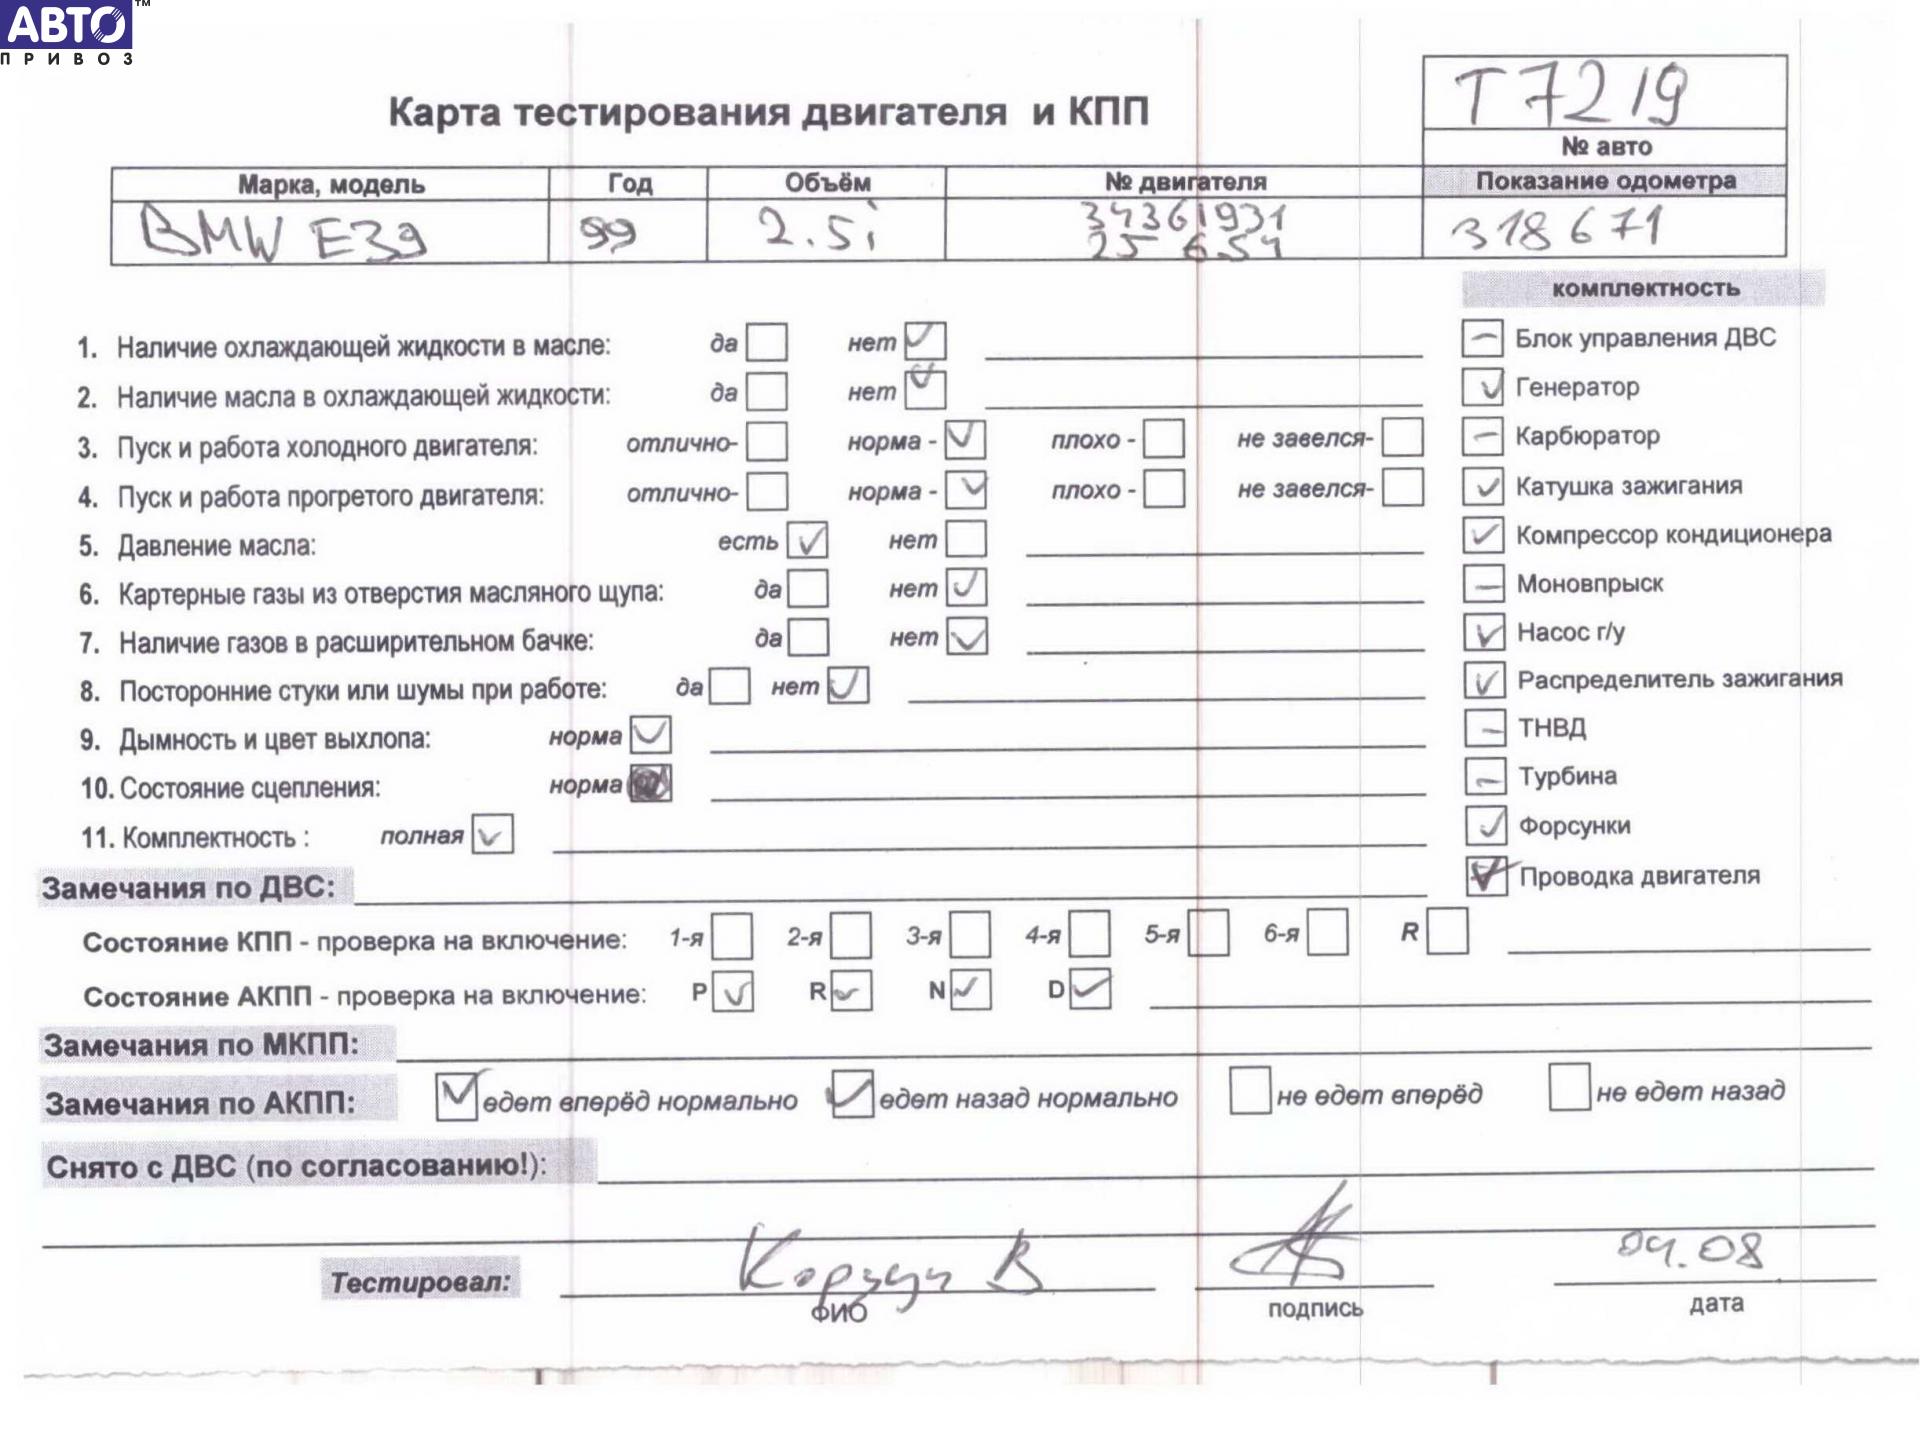 АВТО™
ПРИВОЗ
Т7219
Карта тестирования двигателя и КПП
№ авто
Марка, модель Год Объём № двигателя Показание одометра
BMW E39 99 2.5i 34361931 318671
25 6S4
комплектность
1. Наличие охлаждающей жидкости в масле: да нет
Блок управления ДВС
2. Наличие масла в охлаждающей жидкости: да нет
Генератор
3. Пуск и работа холодного двигателя: отлично- норма - плохо - не завелся-
Карбюратор
4. Пуск и работа прогретого двигателя: отлично- норма - плохо - не завелся-
Катушка зажигания
5. Давление масла: есть нет
Компрессор кондиционера
6. Картерные газы из отверстия масляного щупа: да нет
Моновпрыск
7. Наличие газов в расширительном бачке: да нет
Насос г/у
8. Посторонние стуки или шумы при работе: да нет
Распределитель зажигания
9. Дымность и цвет выхлопа: норма
ТНВД
10. Состояние сцепления: норма
Турбина
11. Комплектность : полная
Форсунки
Замечания по ДВС:
Проводка двигателя
Состояние КПП - проверка на включение: 1-я 2-я 3-я 4-я 5-я 6-я R
Состояние АКПП - проверка на включение: P R N D
Замечания по МКПП:
Замечания по АКПП: едет вперёд нормально едет назад нормально не едет вперёд не едет назад
Снято с ДВС (по согласованию!):
Тестировал: В 04.08
ФИО подпись дата